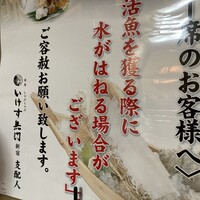 席のお客様へ〉
活魚を獲る際に
水がはねる場合が
ございます」
ご容赦お願い致します。
いけす
新宿 支配人